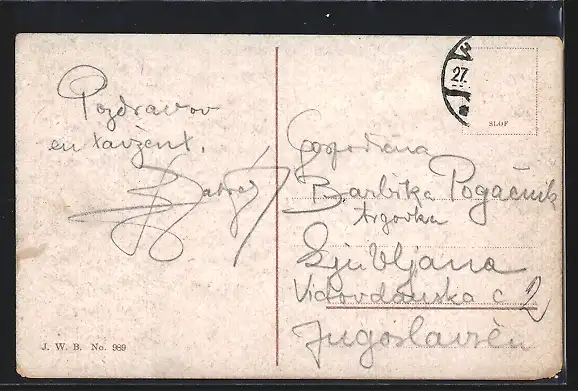 Pozdravov
en tavžent.
27.
SLOF
Gospodična
Barbika Pogačnik
trgovka
Ljubljana
Vidovdanska c 2
Jugoslavien
J. W. B. No. 989